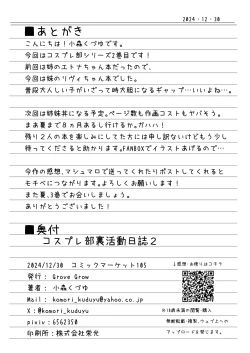 2024・12・30
■あとがき
こんにちは！小森くづゆです。
今回はコスプレ部シリーズ2巻目です！
前回は姉のエトナちゃん本だったので、
今回は妹のリヴィちゃん本でした。
普段大人しい子がいざって時大胆になるギャップ…いいよね…。
次回は姉妹丼になる予定。ページ数も作画コストもヤバそう。
まあ夏まで8ヵ月あるし行けるか。ガハハ！
残り2人の本を楽しみにしてた方には申し訳ないけどもう少し
待ってくださると助かります。FANBOXでイラストあげるので…
今作の感想、マシュマロで送ってくれたりポストしてくれると
モチベにつながります。よろしくお願いします！
また夏、3巻でお会いしましょう。
ありがとうございました！
■奥付
コスプレ部裏活動日誌2
2024/12/30 コミックマーケット105
発行： Grove Grow
著者： 小森くづゆ
Mail： komori_kuduyu@yahoo.co.jp
X：@komori_kuduyu
pixiv：6562350
印刷：株式会社栄光
↓感想・お便りはコチラ
※18歳未満の閲覧・購入
無断転載・複写、ウェブ上への
アップロードを禁じます。